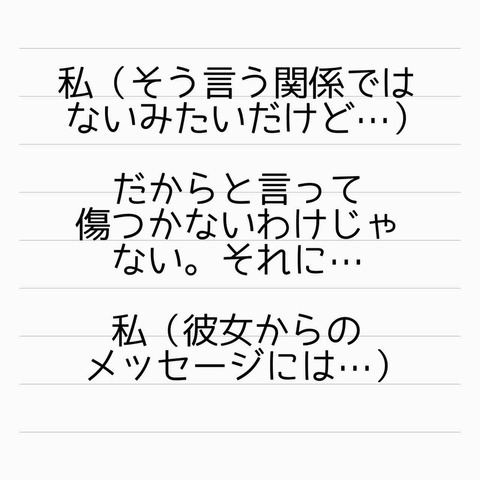 私（そう言う関係では
ないみたいだけど…）
だからと言って
傷つかないわけじゃ
ない。それに…
私（彼女からの
メッセージには…）